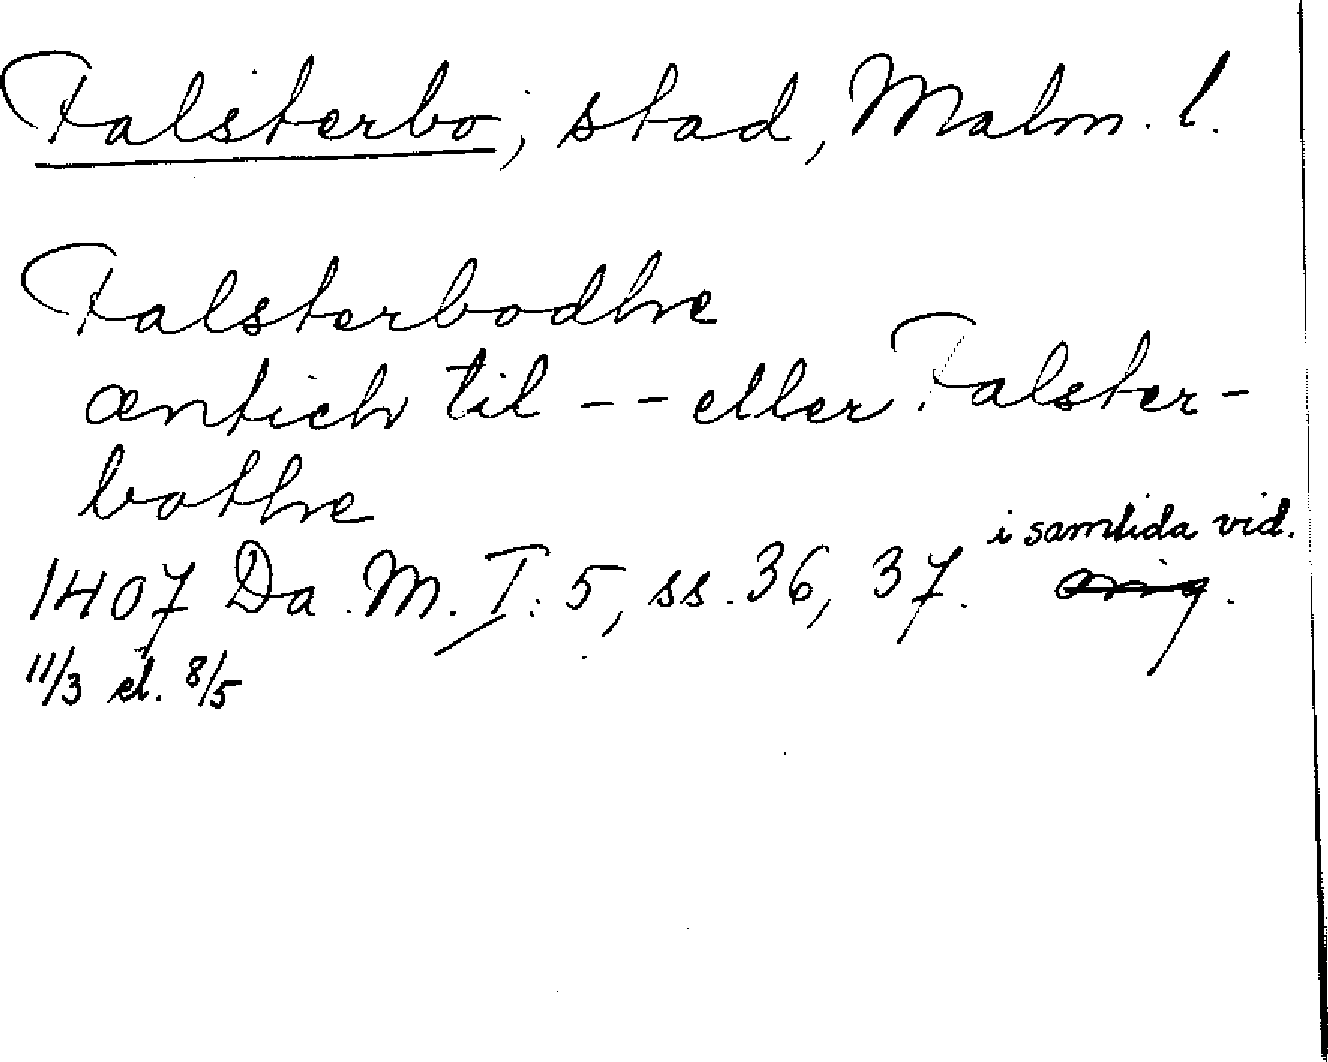 Falsterbo, stad, Malm. l.
Falsterbodhe
æntich til -- eller Falster-
bothe
i samtida vid.
1407 Da. M. I: 5, ss. 36, 37. orig.
11/3 el. 8/5